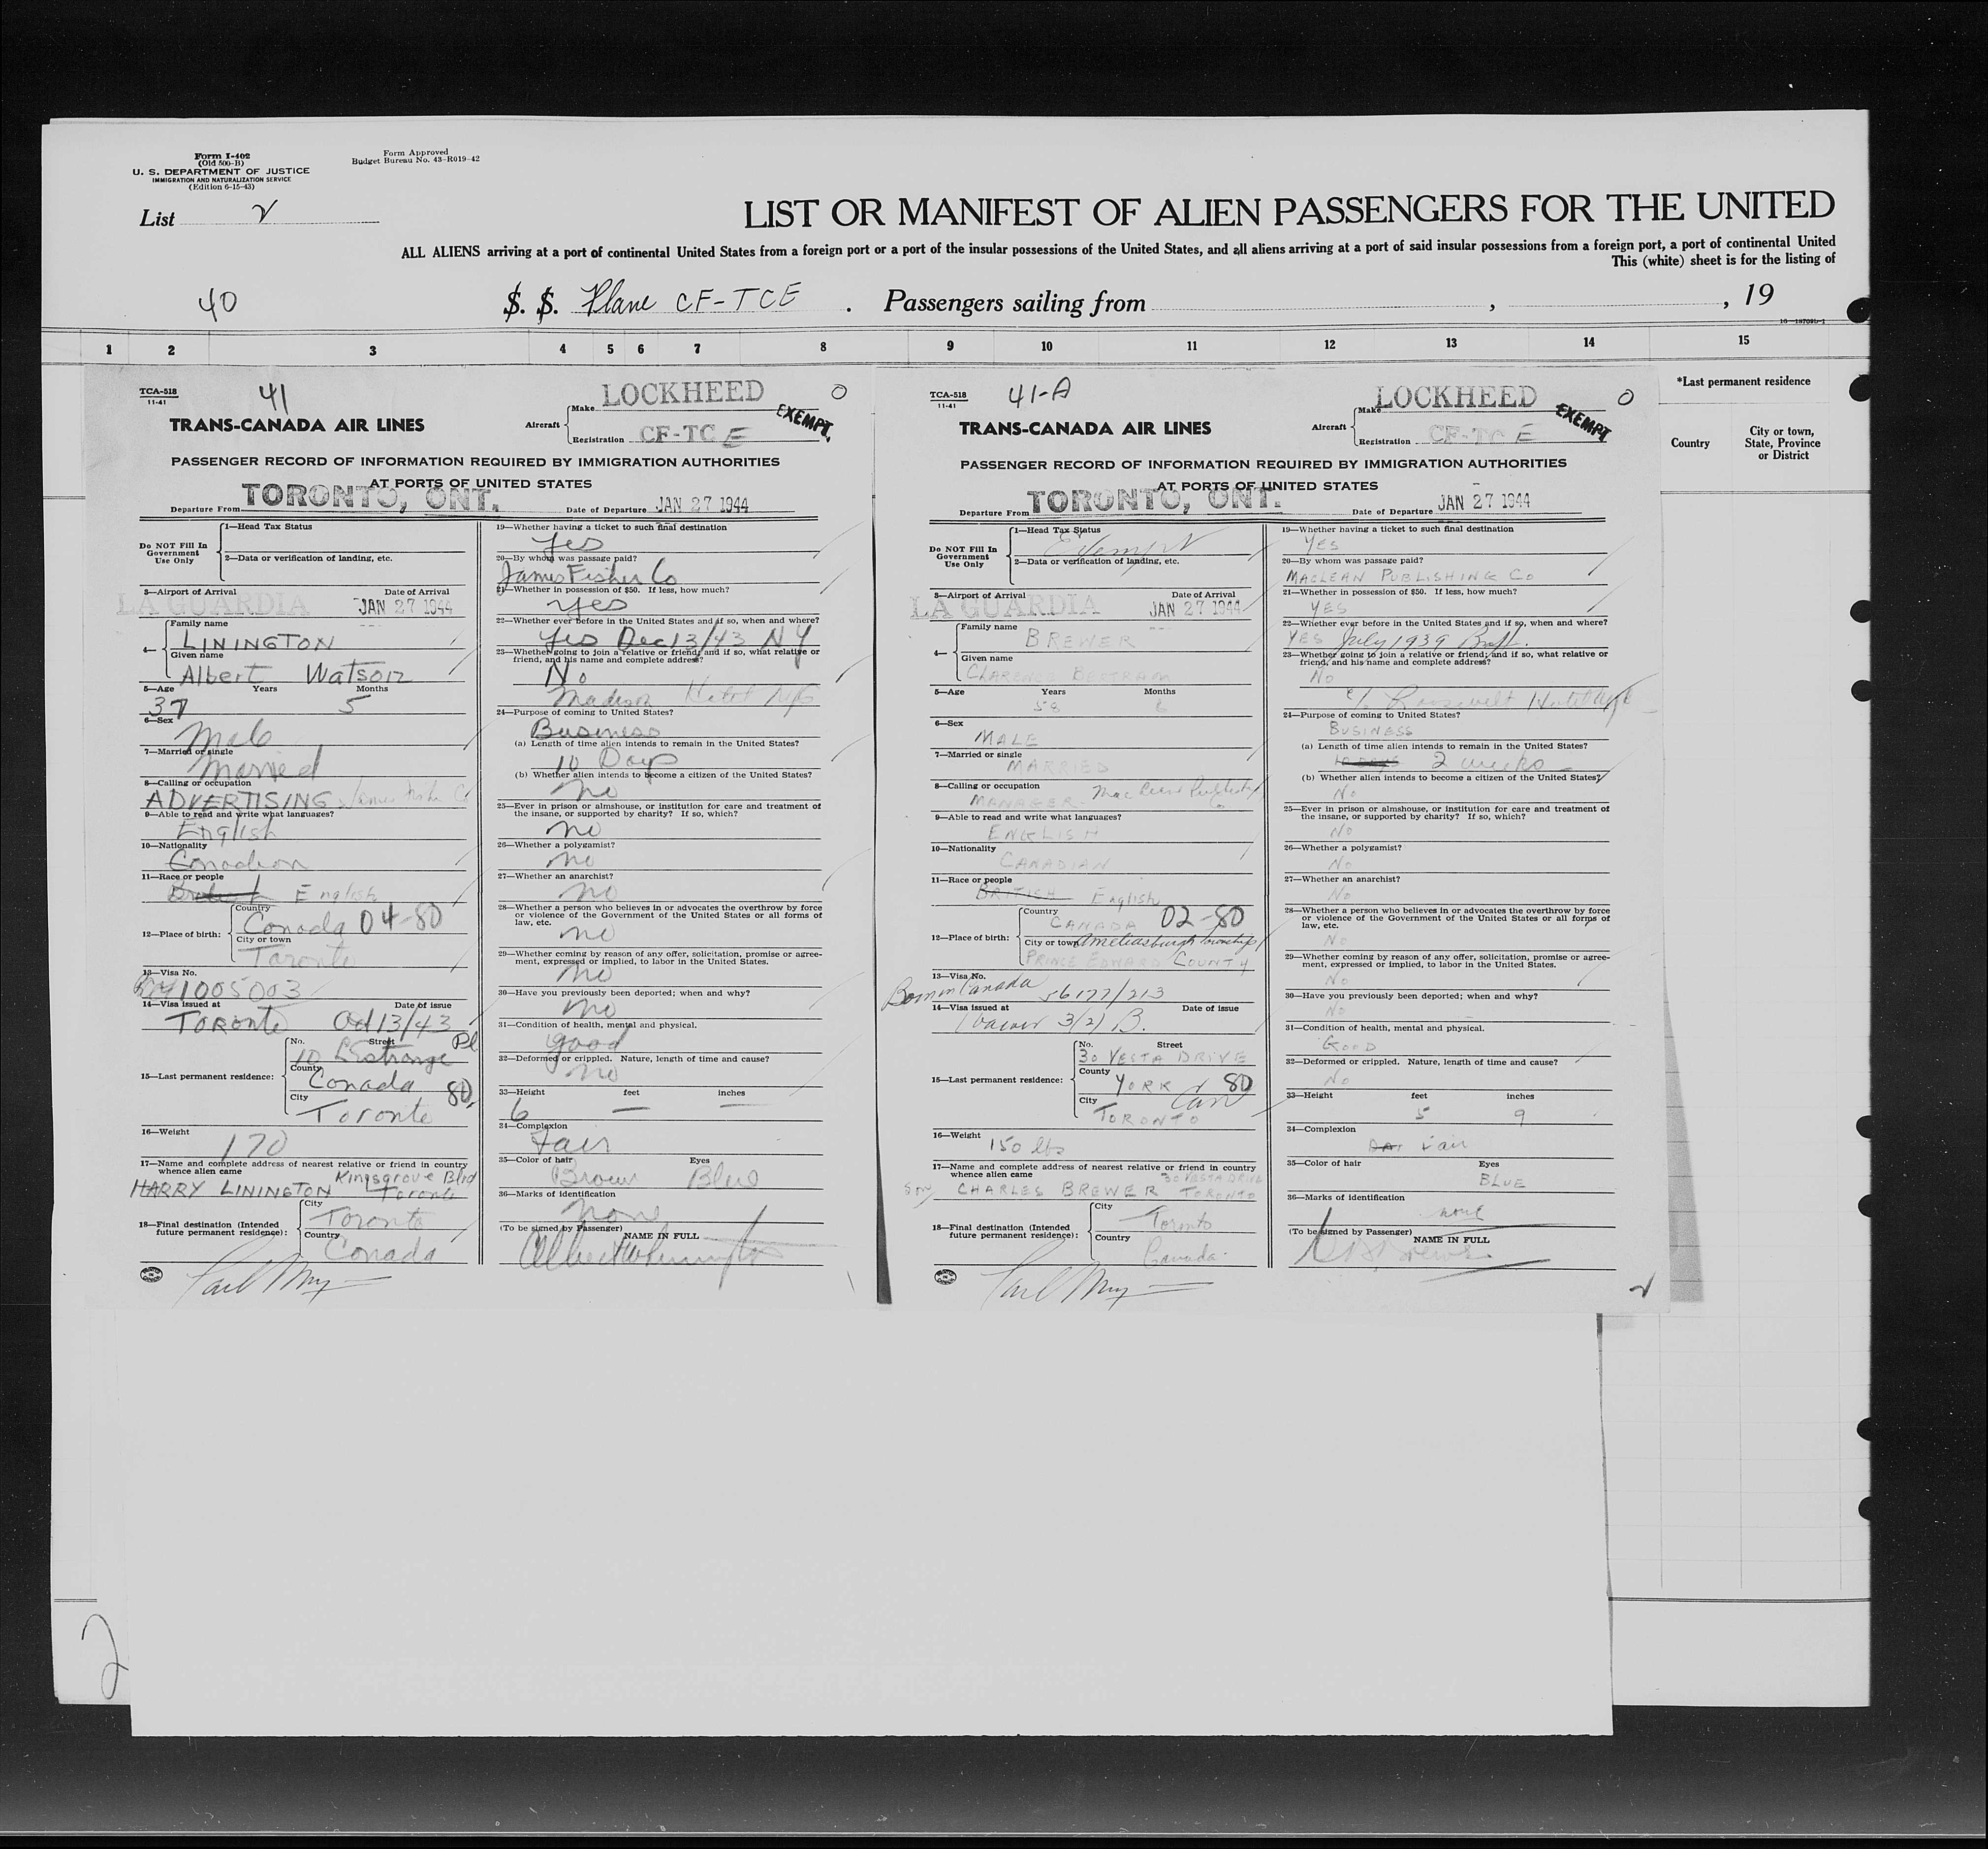 Form I-402
(Old 500-B)
U. S. DEPARTMENT OF JUSTICE
IMMIGRATION AND NATURALIZATION SERVICE
(Edition 6-15-43)
Form Approved
Budget Bureau No. 43-R019-42
List 2
LIST OR MANIFEST OF ALIEN PASSENGERS FOR THE UNITED
ALL ALIENS arriving at a port of continental United States from a foreign port or a port of the insular possessions of the United States, and all aliens arriving at a port of said insular possessions from a foreign port, a port of continental United
This (white) sheet is for the listing of
40
S. S. Plane CF-TCE . Passengers sailing from , , 19
1 2 3 4 5 6 7 8 9 10 11 12 13 14 15
*Last permanent residence
Country
City or town, State, Province or District
TCA-518
11-41
41
TRANS-CANADA AIR LINES
Aircraft
Make LOCKHEED
Registration CF-TC E
EXEMPT.
0
PASSENGER RECORD OF INFORMATION REQUIRED BY IMMIGRATION AUTHORITIES
AT PORTS OF UNITED STATES
Departure From TORONTO, ONT. Date of Departure JAN 27 1944
Do NOT Fill In Government Use Only
1—Head Tax Status
2—Data or verification of landing, etc.
3—Airport of Arrival Date of Arrival
LA GUARDIA JAN 27 1944
4—
Family name
LININGTON
Given name
Albert Watson
5—Age Years Months
37 5
6—Sex
Male
7—Married or single
Married
8—Calling or occupation
ADVERTISING James Fisher Co
9—Able to read and write what languages?
English
10—Nationality
Canadian
11—Race or people
British English
12—Place of birth:
Country
Canada 04-80
City or town
Toronto
13—Visa No.
1005003
14—Visa issued at Date of issue
Toronto Oct 13/43
15—Last permanent residence:
No. Street
10 L'Estrange Pl
County
Canada 80
City
Toronto
16—Weight
170
17—Name and complete address of nearest relative or friend in country whence alien came
HARRY LININGTON Kingsgrove Blvd Toronto
18—Final destination (Intended future permanent residence):
City
Toronto
Country
Canada
19—Whether having a ticket to such final destination
Yes
20—By whom was passage paid?
James Fisher Co
21—Whether in possession of $50. If less, how much?
Yes
22—Whether ever before in the United States and if so, when and where?
Yes Dec 13/43 N Y
23—Whether going to join a relative or friend; and if so, what relative or friend, and his name and complete address?
No
Madison Hotel NYC
24—Purpose of coming to United States?
Business
(a) Length of time alien intends to remain in the United States?
10 Days
(b) Whether alien intends to become a citizen of the United States?
no
25—Ever in prison or almshouse, or institution for care and treatment of the insane, or supported by charity? If so, which?
no
26—Whether a polygamist?
no
27—Whether an anarchist?
no
28—Whether a person who believes in or advocates the overthrow by force or violence of the Government of the United States or all forms of law, etc.
no
29—Whether coming by reason of any offer, solicitation, promise or agreement, expressed or implied, to labor in the United States.
no
30—Have you previously been deported; when and why?
no
31—Condition of health, mental and physical.
good
32—Deformed or crippled. Nature, length of time and cause?
no
33—Height feet inches
6 — —
34—Complexion
Fair
35—Color of hair Eyes
Brown Blue
36—Marks of identification
none
(To be signed by Passenger) NAME IN FULL
Albert W Linington
TCA-518
11-41
41-A
TRANS-CANADA AIR LINES
Aircraft
Make LOCKHEED
Registration CF-TC E
EXEMPT
0
PASSENGER RECORD OF INFORMATION REQUIRED BY IMMIGRATION AUTHORITIES
AT PORTS OF UNITED STATES
Departure From TORONTO, ONT. Date of Departure JAN 27 1944
Do NOT Fill In Government Use Only
1—Head Tax Status
Exempt
2—Data or verification of landing, etc.
3—Airport of Arrival Date of Arrival
LA GUARDIA JAN 27 1944
4—
Family name
BREWER
Given name
CLARENCE BERTRAM
5—Age Years Months
58 8
6—Sex
MALE
7—Married or single
MARRIED
8—Calling or occupation
MANAGER MacLean Publishing Co
9—Able to read and write what languages?
ENGLISH
10—Nationality
CANADIAN
11—Race or people
BRITISH English
12—Place of birth:
Country
CANADA 02-80
City or town Ameliasburgh Township
PRINCE EDWARD COUNTY
13—Visa No.
Born in Canada 56177/213
14—Visa issued at Date of issue
Waiver 3(2) B.
15—Last permanent residence:
No. Street
30 VESTA DRIVE
County
YORK Can 80
City
TORONTO
16—Weight
150 lbs
17—Name and complete address of nearest relative or friend in country whence alien came
Son CHARLES BREWER 30 VESTA DRIVE TORONTO
18—Final destination (Intended future permanent residence):
City
Toronto
Country
Canada
19—Whether having a ticket to such final destination
YES
20—By whom was passage paid?
MACLEAN PUBLISHING CO
21—Whether in possession of $50. If less, how much?
YES
22—Whether ever before in the United States and if so, when and where?
YES July 1939 Buff.
23—Whether going to join a relative or friend; and if so, what relative or friend, and his name and complete address?
No
c/o Roosevelt Hotel
24—Purpose of coming to United States?
BUSINESS
(a) Length of time alien intends to remain in the United States?
10 DAYS 2 weeks
(b) Whether alien intends to become a citizen of the United States?
No
25—Ever in prison or almshouse, or institution for care and treatment of the insane, or supported by charity? If so, which?
No
26—Whether a polygamist?
No
27—Whether an anarchist?
No
28—Whether a person who believes in or advocates the overthrow by force or violence of the Government of the United States or all forms of law, etc.
No
29—Whether coming by reason of any offer, solicitation, promise or agreement, expressed or implied, to labor in the United States.
No
30—Have you previously been deported; when and why?
No
31—Condition of health, mental and physical.
GOOD
32—Deformed or crippled. Nature, length of time and cause?
No
33—Height feet inches
5 9
34—Complexion
Fair
35—Color of hair Eyes
BLUE
36—Marks of identification
none
(To be signed by Passenger) NAME IN FULL
C B Brewer
2
2